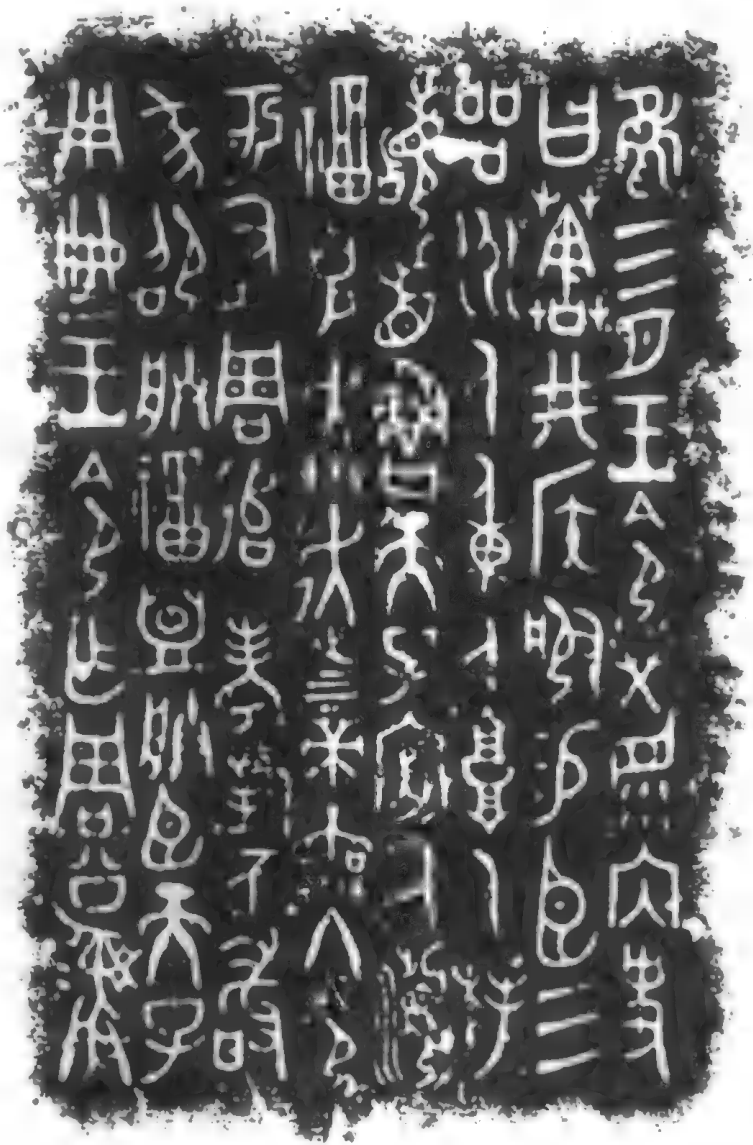 隹三月王令𤇾眔內史
曰𦵯井侯服易臣三
品州人重人𩫖人拜
稽首魯天子厥瀕
福克奔走上下帝無冬令
于有周追考對不敢
邵朕福盟朕臣天子
用冊王令乍周公彝